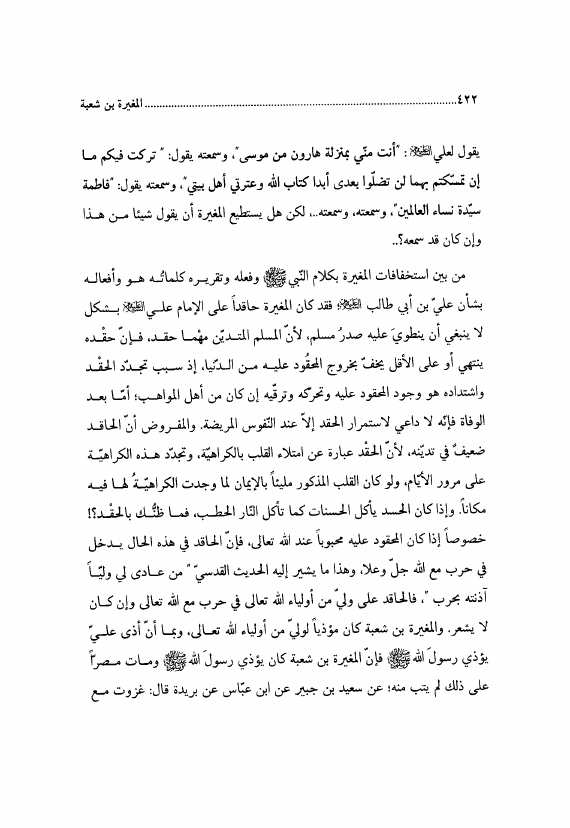 ٤٢٢............................................................المغيرة بن شعبة
يقول لعلي عليه السلام: "أنت منّي بمنزلة هارون من موسى"، وسمعته يقول: " تركت فيكم ما
إن تمسّكتم بهما لن تضلّوا بعدى أبدا كتاب الله وعترتي أهل بيتي"، وسمعته يقول: "فاطمة
سيّدة نساء العالمين"، وسمعته، وسمعته..، لكن هل يستطيع المغيرة أن يقول شيئا من هذا
وإن كان قد سمعه؟..
من بين استخفافات المغيرة بكلام النّبي ﷺ وفعله وتقريره كلماتُه هو وأفعاله
بشأن عليّ بن أبي طالب عليه السلام؛ فقد كان المغيرة حاقداً على الإمام علي عليه السلام بشكل
لا ينبغي أن ينطويَ عليه صدرُ مسلم، لأنّ المسلم المتديّن مهْما حقد، فإنّ حقْده
ينتهي أو على الأقل يخفّ بخروج المحقُود عليه من الدّنيا، إذ سبب تجدّد الحقْد
واشتداده هو وجود المحقود عليه وتحرّكه وترقّيه إن كان من أهل المواهب؛ أمّا بعد
الوفاة فإنّه لا داعي لاستمرار الحقد إلاّ عند النّفوس المريضة. والمفروض أنّ الحاقد
ضعيفٌ في تديّنه، لأنّ الحقْد عبارة عن امتلاء القلب بالكراهيّة، وتجدّد هذه الكراهيّة
على مرور الأيّام، ولو كان القلب المذكور مليئاً بالإيمان لما وجدت الكراهيّةُ لها فيه
مكاناً. وإذا كان الحسد يأكل الحسنات كما تأكل النّار الحطب، فما ظنُّك بالحقْد؟!
خصوصاً إذا كان المحقود عليه محبوباً عند الله تعالى، فإنّ الحاقد في هذه الحال يدخل
في حرب مع الله جلّ وعلا، وهذا ما يشير إليه الحديث القدسيّ " من عادى لي وليّاً
آذنته بحرب "، فالحاقد على وليّ من أولياء الله تعالى في حرب مع الله تعالى وإن كان
لا يشعر. والمغيرة بن شعبة كان مؤذياً لوليّ من أولياء الله تعالى، وبما أنّ أذى عليّ
يؤذي رسولَ الله ﷺ فإنّ المغيرة بن شعبة كان يؤذي رسولَ الله ﷺ ومات مصرّاً
على ذلك لم يتب منه؛ عن سعيد بن جبير عن ابن عبّاس عن بريدة قال: غزوت مع